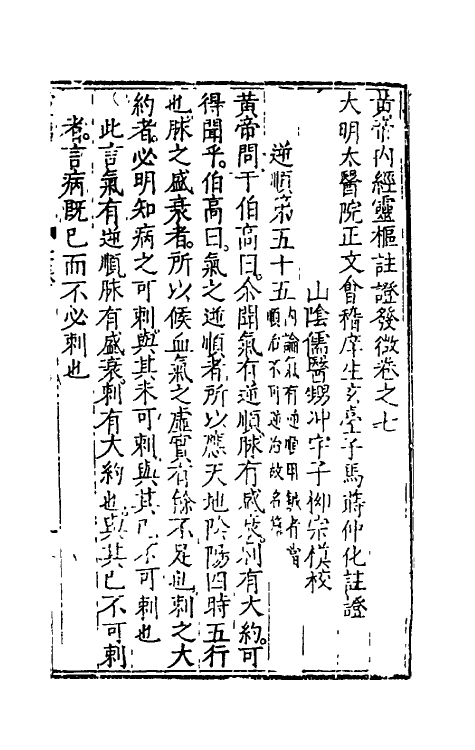 黃帝內經靈樞註證發微卷之七
大明太醫院正文會稽庠生玄臺子馬蒔仲化註證
山陰儒醫甥冲宇子柳宗模校
逆順第五十五
內論氣有逆順用鍼者當
順治不可逆治故名篇
黃帝問于伯高曰。余聞氣有逆順脉有盛衰。刺有大約。可
得聞乎。伯高曰。氣之逆順者所以應天地陰陽四時五行
也脉之盛衰者。所以候血氣之虛實有餘不足也。刺之大
約者。必明知病之可刺與其未可刺。與其已不可刺也
此言氣有逆順脉有盛衰。刺有大約也。與其已不可刺
者。言病既已而不必刺也